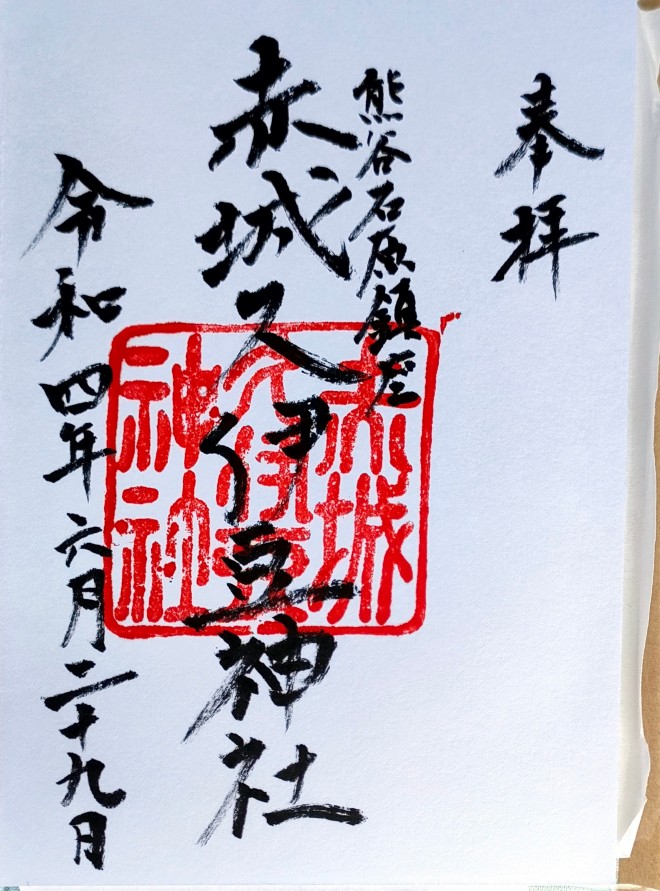 奉拝
熊谷石原鎮座
赤城久伊豆神社
令和四年六月二十九日
赤城
久伊豆
神社